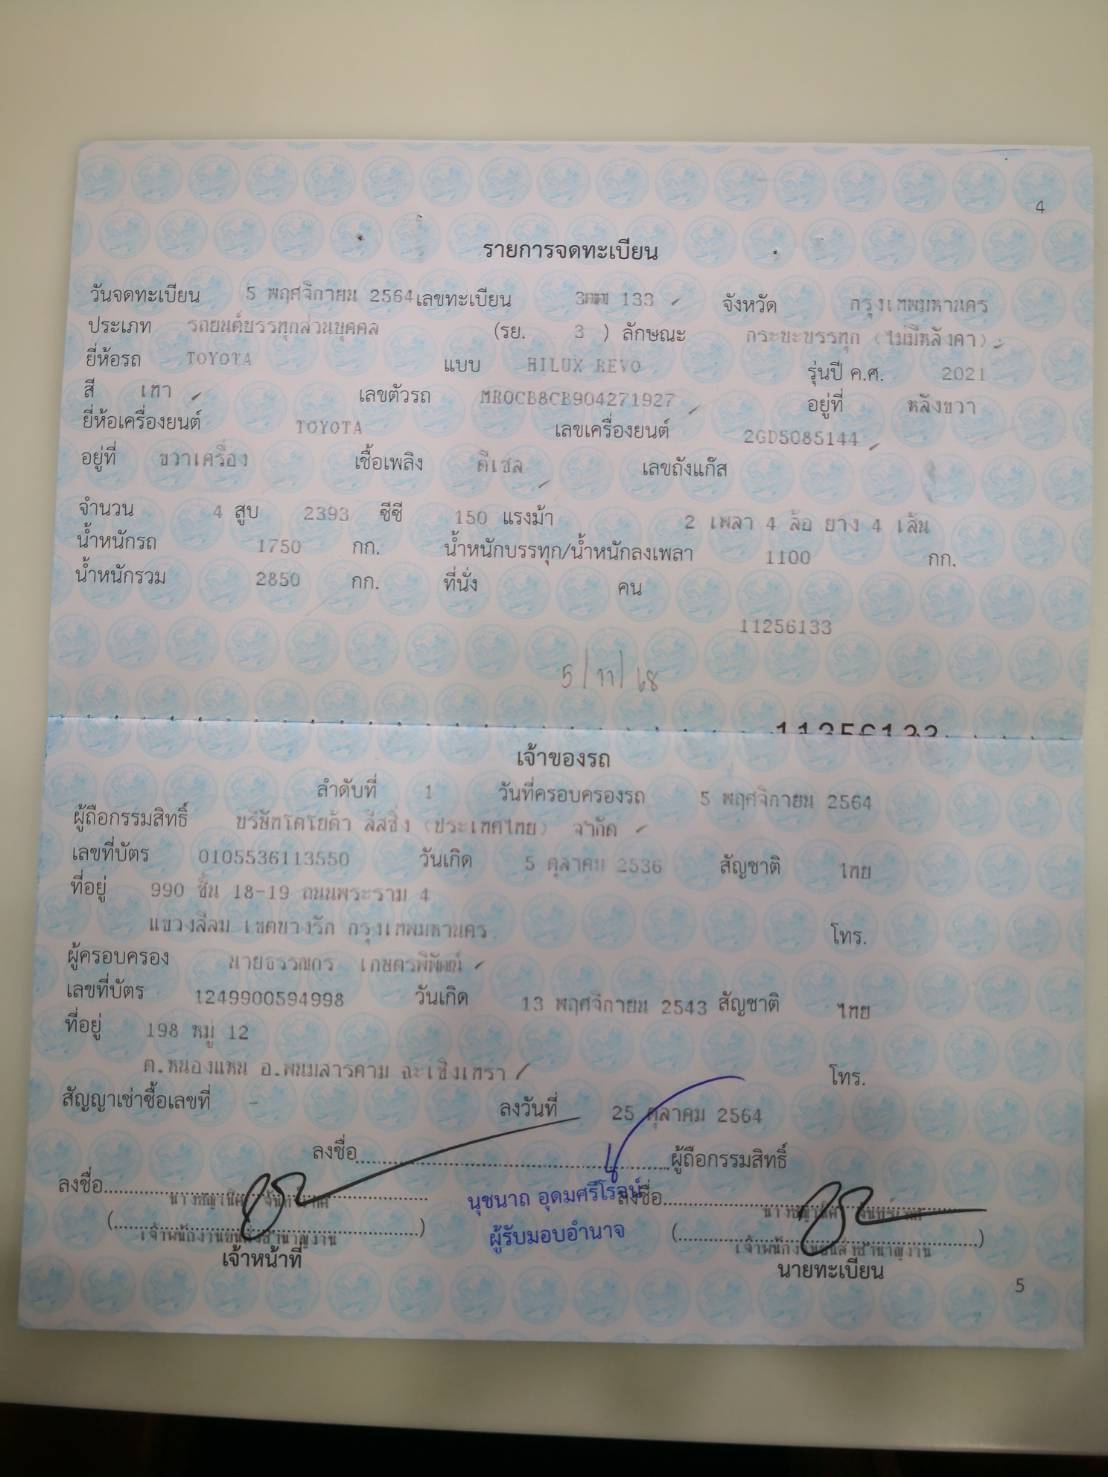 4
รายการจดทะเบียน
วันจดทะเบียน 5 พฤศจิกายน 2564 เลขทะเบียน 133 จังหวัด กรุงเทพมหานคร
ประเภท รถยนต์บรรทุกส่วนบุคคล (รย. 3 ) ลักษณะ กระบะบรรทุก (ไม่มีหลังคา)
ยี่ห้อรถ TOYOTA แบบ HILUX REVO รุ่นปี ค.ศ. 2021
สี เทา เลขตัวรถ MR0CB8CB904271927 อยู่ที่ หลังขวา
ยี่ห้อเครื่องยนต์ TOYOTA เลขเครื่องยนต์ 2GD5085144
อยู่ที่ ขวาเครื่อง เชื้อเพลิง ดีเซล เลขถังแก๊ส
จำนวน 4 สูบ 2393 ซีซี 150 แรงม้า 2 เพลา 4 ล้อ ยาง 4 เส้น
น้ำหนักรถ 1750 กก. น้ำหนักบรรทุก/น้ำหนักลงเพลา 1100 กก.
น้ำหนักรวม 2850 กก. ที่นั่ง คน
11256133
5/11/68
11256133
เจ้าของรถ
ลำดับที่ 1 วันที่ครอบครองรถ 5 พฤศจิกายน 2564
ผู้ถือกรรมสิทธิ์ บริษัทโตโยต้า ลีสซิ่ง (ประเทศไทย) จำกัด
เลขที่บัตร 0105536113550 วันเกิด 5 ตุลาคม 2536 สัญชาติ ไทย
ที่อยู่ 990 ชั้น 18-19 ถนนพระราม 4
แขวงสีลม เขตบางรัก กรุงเทพมหานคร โทร.
ผู้ครอบครอง นายธรรณกร เกษตรพิพัฒน์
เลขที่บัตร 1249900594998 วันเกิด 13 พฤศจิกายน 2543 สัญชาติ ไทย
ที่อยู่ 198 หมู่ 12
ต.หนองแหน อ.พนมสารคาม ฉะเชิงเทรา โทร.
สัญญาเช่าซื้อเลขที่ - ลงวันที่ 25 ตุลาคม 2564
ลงชื่อ ผู้ถือกรรมสิทธิ์
ลงชื่อ นุชนาถ อุดมศรีโรจน์ ลงชื่อ
ผู้รับมอบอำนาจ
เจ้าพนักงานขนส่งชำนาญงาน เจ้าพนักงานขนส่งชำนาญงาน
เจ้าหน้าที่ นายทะเบียน
5